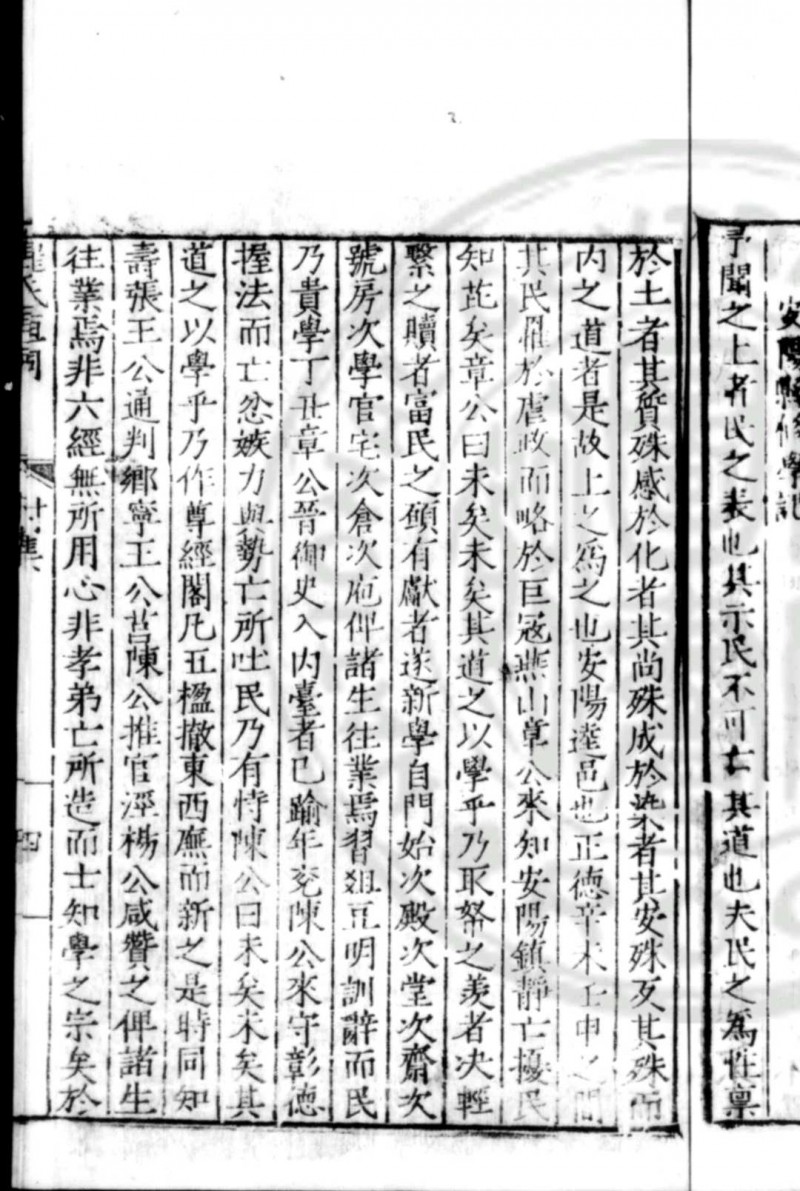 安陽縣修學記
予聞之上者民之表也其示民不可亡其道也夫民之為性稟
於土者其質殊感於化者其尚殊成於染者其安殊反其殊而
內之道者是故上之為之也安陽達邑也正德辛未壬申之間
其民罹於虐政而略於巨寇燕山章公來知安陽鎮靜亡擾民
知芘矣章公曰未矣未矣其道之以學乎乃取帑之羨者決輕
繫之贖者富民之願有獻者遂新學自門始次殿次堂次齋次
號房次學官宅次倉次庖俾諸生往業焉習俎豆明訓辭而民
乃貴學丁丑章公晉御史入內臺者巳踰年兗陳公來守彰德
握法而亡忿嫉力與勢亡所吐民乃有恃陳公曰未矣未矣其
道之以學乎乃作尊經閣凡五楹撤東西廡而新之是時同知
壽張王公通判鄉寧王公莒陳公推官涇楊公咸贊之俾諸生
往業焉非六經無所用心非孝弟亡所造而士知學之宗矣於
四